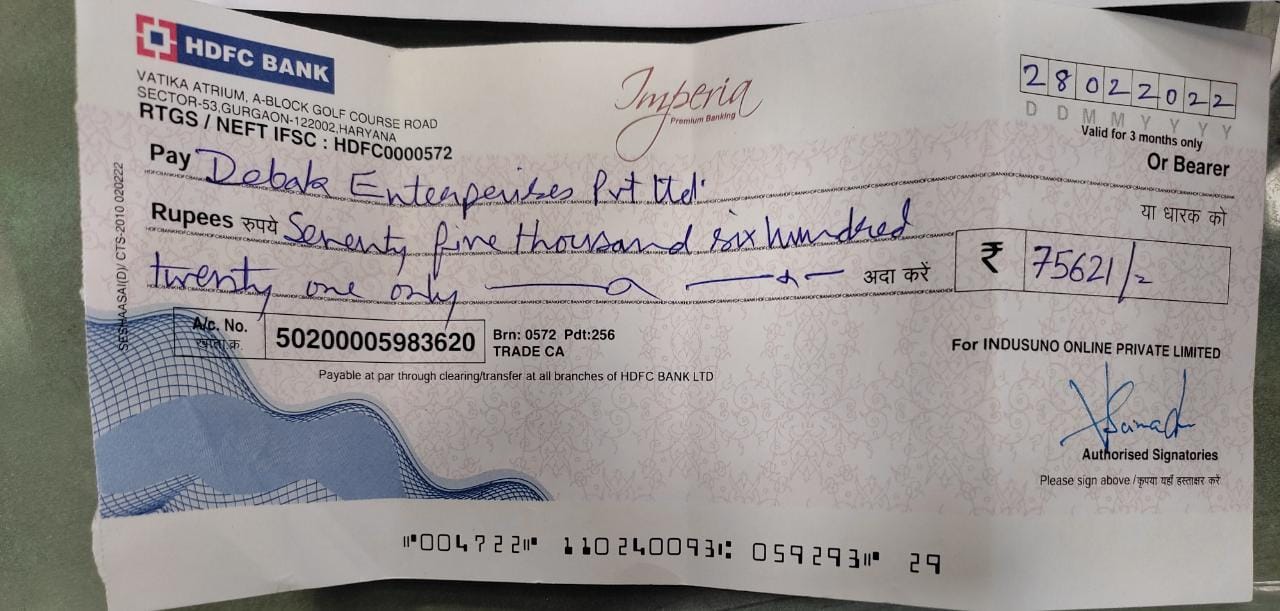 HDFC BANK
VATIKA ATRIUM, A-BLOCK GOLF COURSE ROAD
SECTOR-53,GURGAON-122002,HARYANA
RTGS / NEFT IFSC : HDFC0000572
Imperia
Premium Banking
28022022
D D M M Y Y Y Y
Valid for 3 months only
Pay Debak Enterperises Pvt ltd.
Or Bearer
या धारक को
Rupees रुपये Seventy five thousand six hundred
twenty one only अदा करें
₹ 75621/-
A/c. No.
खाता क्र.
50200005983620
Brn: 0572 Pdt:256
TRADE CA
Payable at par through clearing/transfer at all branches of HDFC BANK LTD
For INDUSUNO ONLINE PRIVATE LIMITED
Authorised Signatories
Please sign above / कृपया यहाँ हस्ताक्षर करें
SESHAASAI(D)/ CTS-2010 020222
⑈004722⑈ 110240093⑆ 059293⑈ 29